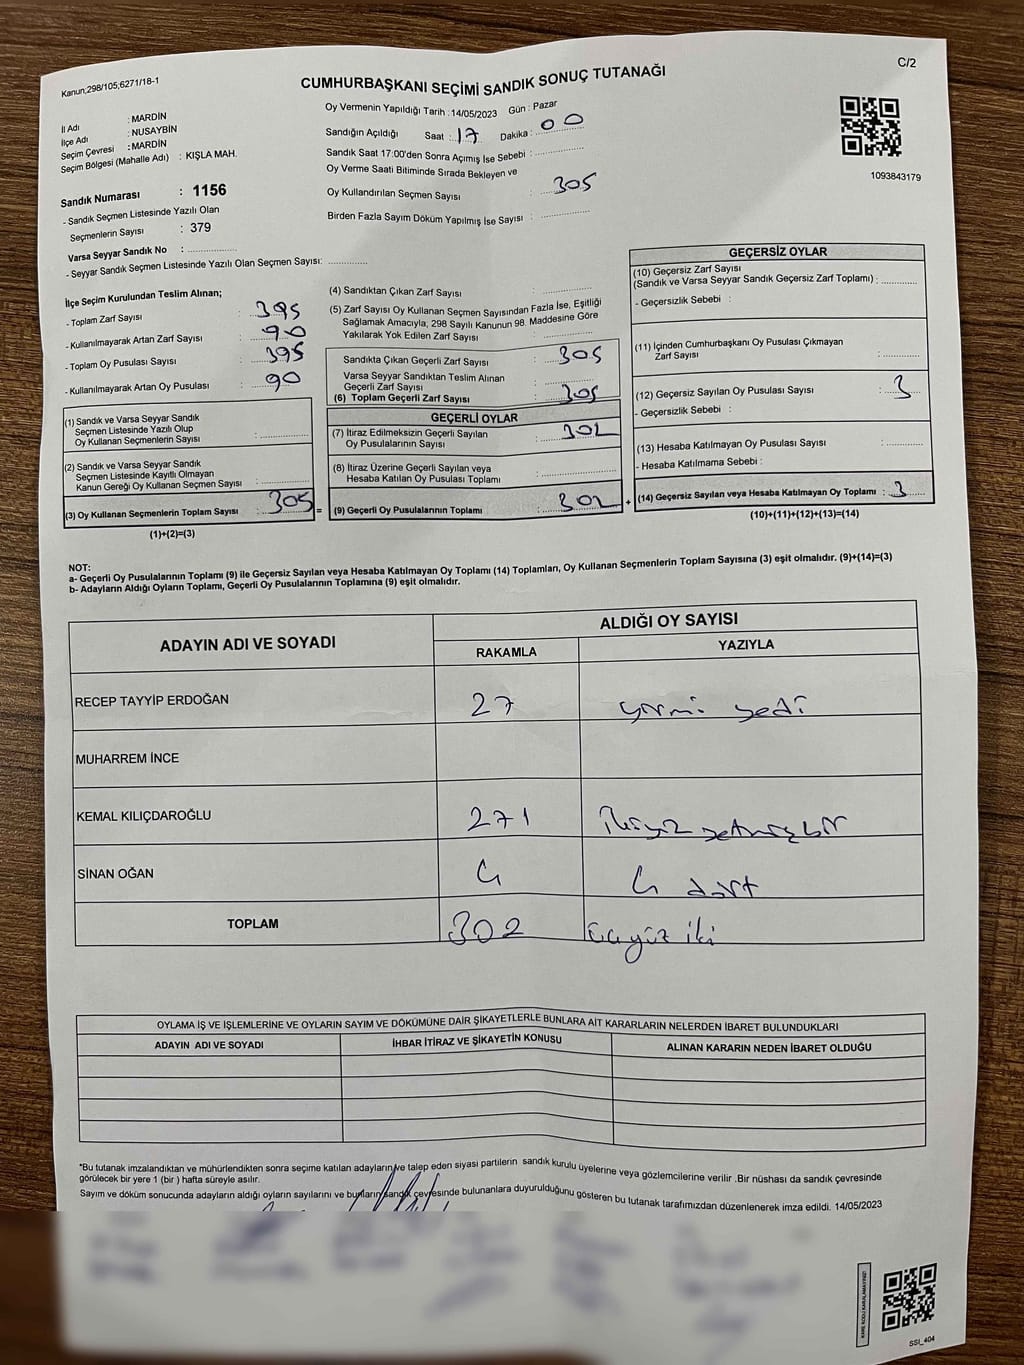 Kanun;298/105;6271/18-1
C/2
CUMHURBAŞKANI SEÇİMİ SANDIK SONUÇ TUTANAĞI
İl Adı : MARDİN
İlçe Adı : NUSAYBİN
Seçim Çevresi : MARDİN
Seçim Bölgesi (Mahalle Adı) : KIŞLA MAH.
Sandık Numarası : 1156
- Sandık Seçmen Listesinde Yazılı Olan
Seçmenlerin Sayısı : 379
Varsa Seyyar Sandık No :
- Seyyar Sandık Seçmen Listesinde Yazılı Olan Seçmen Sayısı:
Oy Vermenin Yapıldığı Tarih : 14/05/2023 Gün : Pazar
Sandığın Açıldığı Saat : 17 Dakika : 00
Sandık Saat 17:00'den Sonra Açımış İse Sebebi :
Oy Verme Saati Bitiminde Sırada Bekleyen ve
Oy Kullandırılan Seçmen Sayısı : 305
Birden Fazla Sayım Döküm Yapılmış İse Sayısı :
1093843179
İlçe Seçim Kurulundan Teslim Alınan;
- Toplam Zarf Sayısı : 395
- Kullanılmayarak Artan Zarf Sayısı : 90
- Toplam Oy Pusulası Sayısı : 395
- Kullanılmayarak Artan Oy Pusulası : 90
(1) Sandık ve Varsa Seyyar Sandık
Seçmen Listesinde Yazılı Olup
Oy Kullanan Seçmenlerin Sayısı :
(2) Sandık ve Varsa Seyyar Sandık
Seçmen Listesinde Kayıtlı Olmayan
Kanun Gereği Oy Kullanan Seçmen Sayısı :
(3) Oy Kullanan Seçmenlerin Toplam Sayısı : 305 =
(1)+(2)=(3)
(4) Sandıktan Çıkan Zarf Sayısı :
(5) Zarf Sayısı Oy Kullanan Seçmen Sayısından Fazla İse, Eşitliği
Sağlamak Amacıyla; 298 Sayılı Kanunun 98. Maddesine Göre
Yakılarak Yok Edilen Zarf Sayısı :
Sandıkta Çıkan Geçerli Zarf Sayısı : 305
Varsa Seyyar Sandıktan Teslim Alınan
Geçerli Zarf Sayısı :
(6) Toplam Geçerli Zarf Sayısı : 305
GEÇERLİ OYLAR
(7) İtiraz Edilmeksizin Geçerli Sayılan
Oy Pusulalarının Sayısı : 302
(8) İtiraz Üzerine Geçerli Sayılan veya
Hesaba Katılan Oy Pusulası Toplamı :
(9) Geçerli Oy Pusulalarının Toplamı : 302 +
GEÇERSİZ OYLAR
(10) Geçersiz Zarf Sayısı
(Sandık ve Varsa Seyyar Sandık Geçersiz Zarf Toplamı) :
- Geçersizlik Sebebi :
(11) İçinden Cumhurbaşkanı Oy Pusulası Çıkmayan
Zarf Sayısı :
(12) Geçersiz Sayılan Oy Pusulası Sayısı : 3
- Geçersizlik Sebebi :
(13) Hesaba Katılmayan Oy Pusulası Sayısı :
- Hesaba Katılmama Sebebi :
(14) Geçersiz Sayılan veya Hesaba Katılmayan Oy Toplamı : 3
(10)+(11)+(12)+(13)=(14)
NOT:
a- Geçerli Oy Pusulalarının Toplamı (9) ile Geçersiz Sayılan veya Hesaba Katılmayan Oy Toplamı (14) Toplamları, Oy Kullanan Seçmenlerin Toplam Sayısına (3) eşit olmalıdır. (9)+(14)=(3)
b- Adayların Aldığı Oyların Toplamı, Geçerli Oy Pusulalarının Toplamına (9) eşit olmalıdır.
ADAYIN ADI VE SOYADI ALDIĞI OY SAYISI
RAKAMLA YAZIYLA
RECEP TAYYİP ERDOĞAN 27 yirmi yedi
MUHARREM İNCE
KEMAL KILIÇDAROĞLU 271 ikiyüz yetmiş bir
SİNAN OĞAN 4 4 dört
TOPLAM 302 üçyüz iki
OYLAMA İŞ VE İŞLEMLERİNE VE OYLARIN SAYIM VE DÖKÜMÜNE DAİR ŞİKAYETLERLE BUNLARA AİT KARARLARIN NELERDEN İBARET BULUNDUKLARI
ADAYIN ADI VE SOYADI İHBAR İTİRAZ VE ŞİKAYETİN KONUSU ALINAN KARARIN NEDEN İBARET OLDUĞU
*Bu tutanak imzalandıktan ve mühürlendikten sonra seçime katılan adayların ve talep eden siyasi partilerin sandık kurulu üyelerine veya gözlemcilerine verilir .Bir nüshası da sandık çevresinde
görülecek bir yere 1 (bir ) hafta süreyle asılır.
Sayım ve döküm sonucunda adayların aldığı oyların sayılarını ve bunların sandık çevresinde bulunanlara duyurulduğunu gösteren bu tutanak tarafımızdan düzenlenerek imza edildi. 14/05/2023
KARE KODU KARALAMAYINIZ!
SSI_404